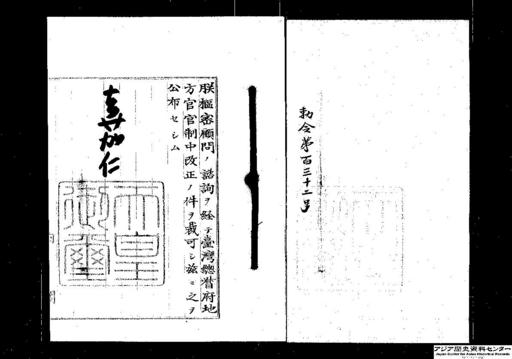 勅令第百三十二号
朕樞密顧問ノ諮詢ヲ経テ臺灣總督府地
方官官制中改正ノ件ヲ裁可シ茲ニ之ヲ
公布セシム
嘉仁
天皇
御璽
アジア歴史資料センター
Japan Center for Asian Historical Records